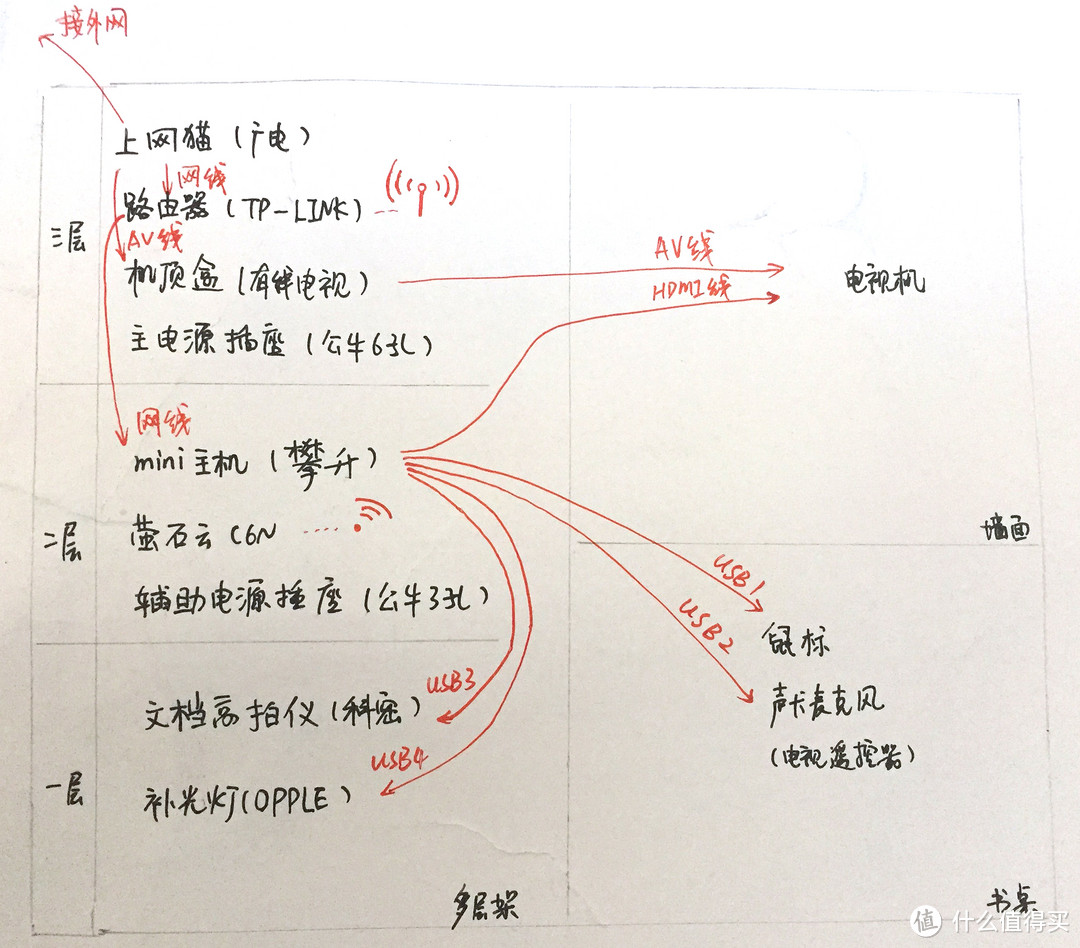 接外网
上网猫（广电）
网线
路由器（TP-LINK）
三层
AV线
机顶盒（有线电视）
AV线
HDMI线
电视机
主电源插座（公牛6孔）
网线
mini主机（攀升）
二层
萤石云 C6N
墙面
辅助电源插座（公牛3孔）
USB1
USB2
鼠标
USB3
文档高拍仪（科密）
声卡麦克风
（电视遥控器）
USB4
一层
补光灯（OPPLE）
多层架
书桌
值 什么值得买